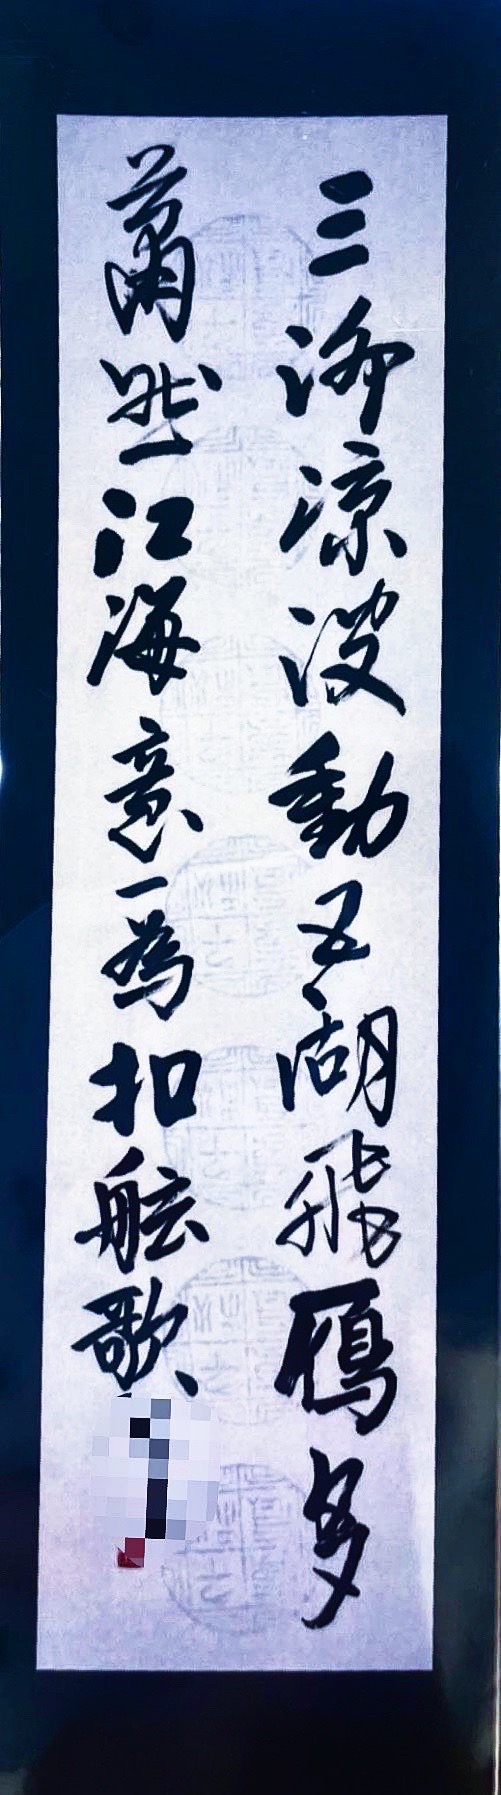 三泖凉波動五湖飛鴈多
蕭然江海意一為扣舷歌